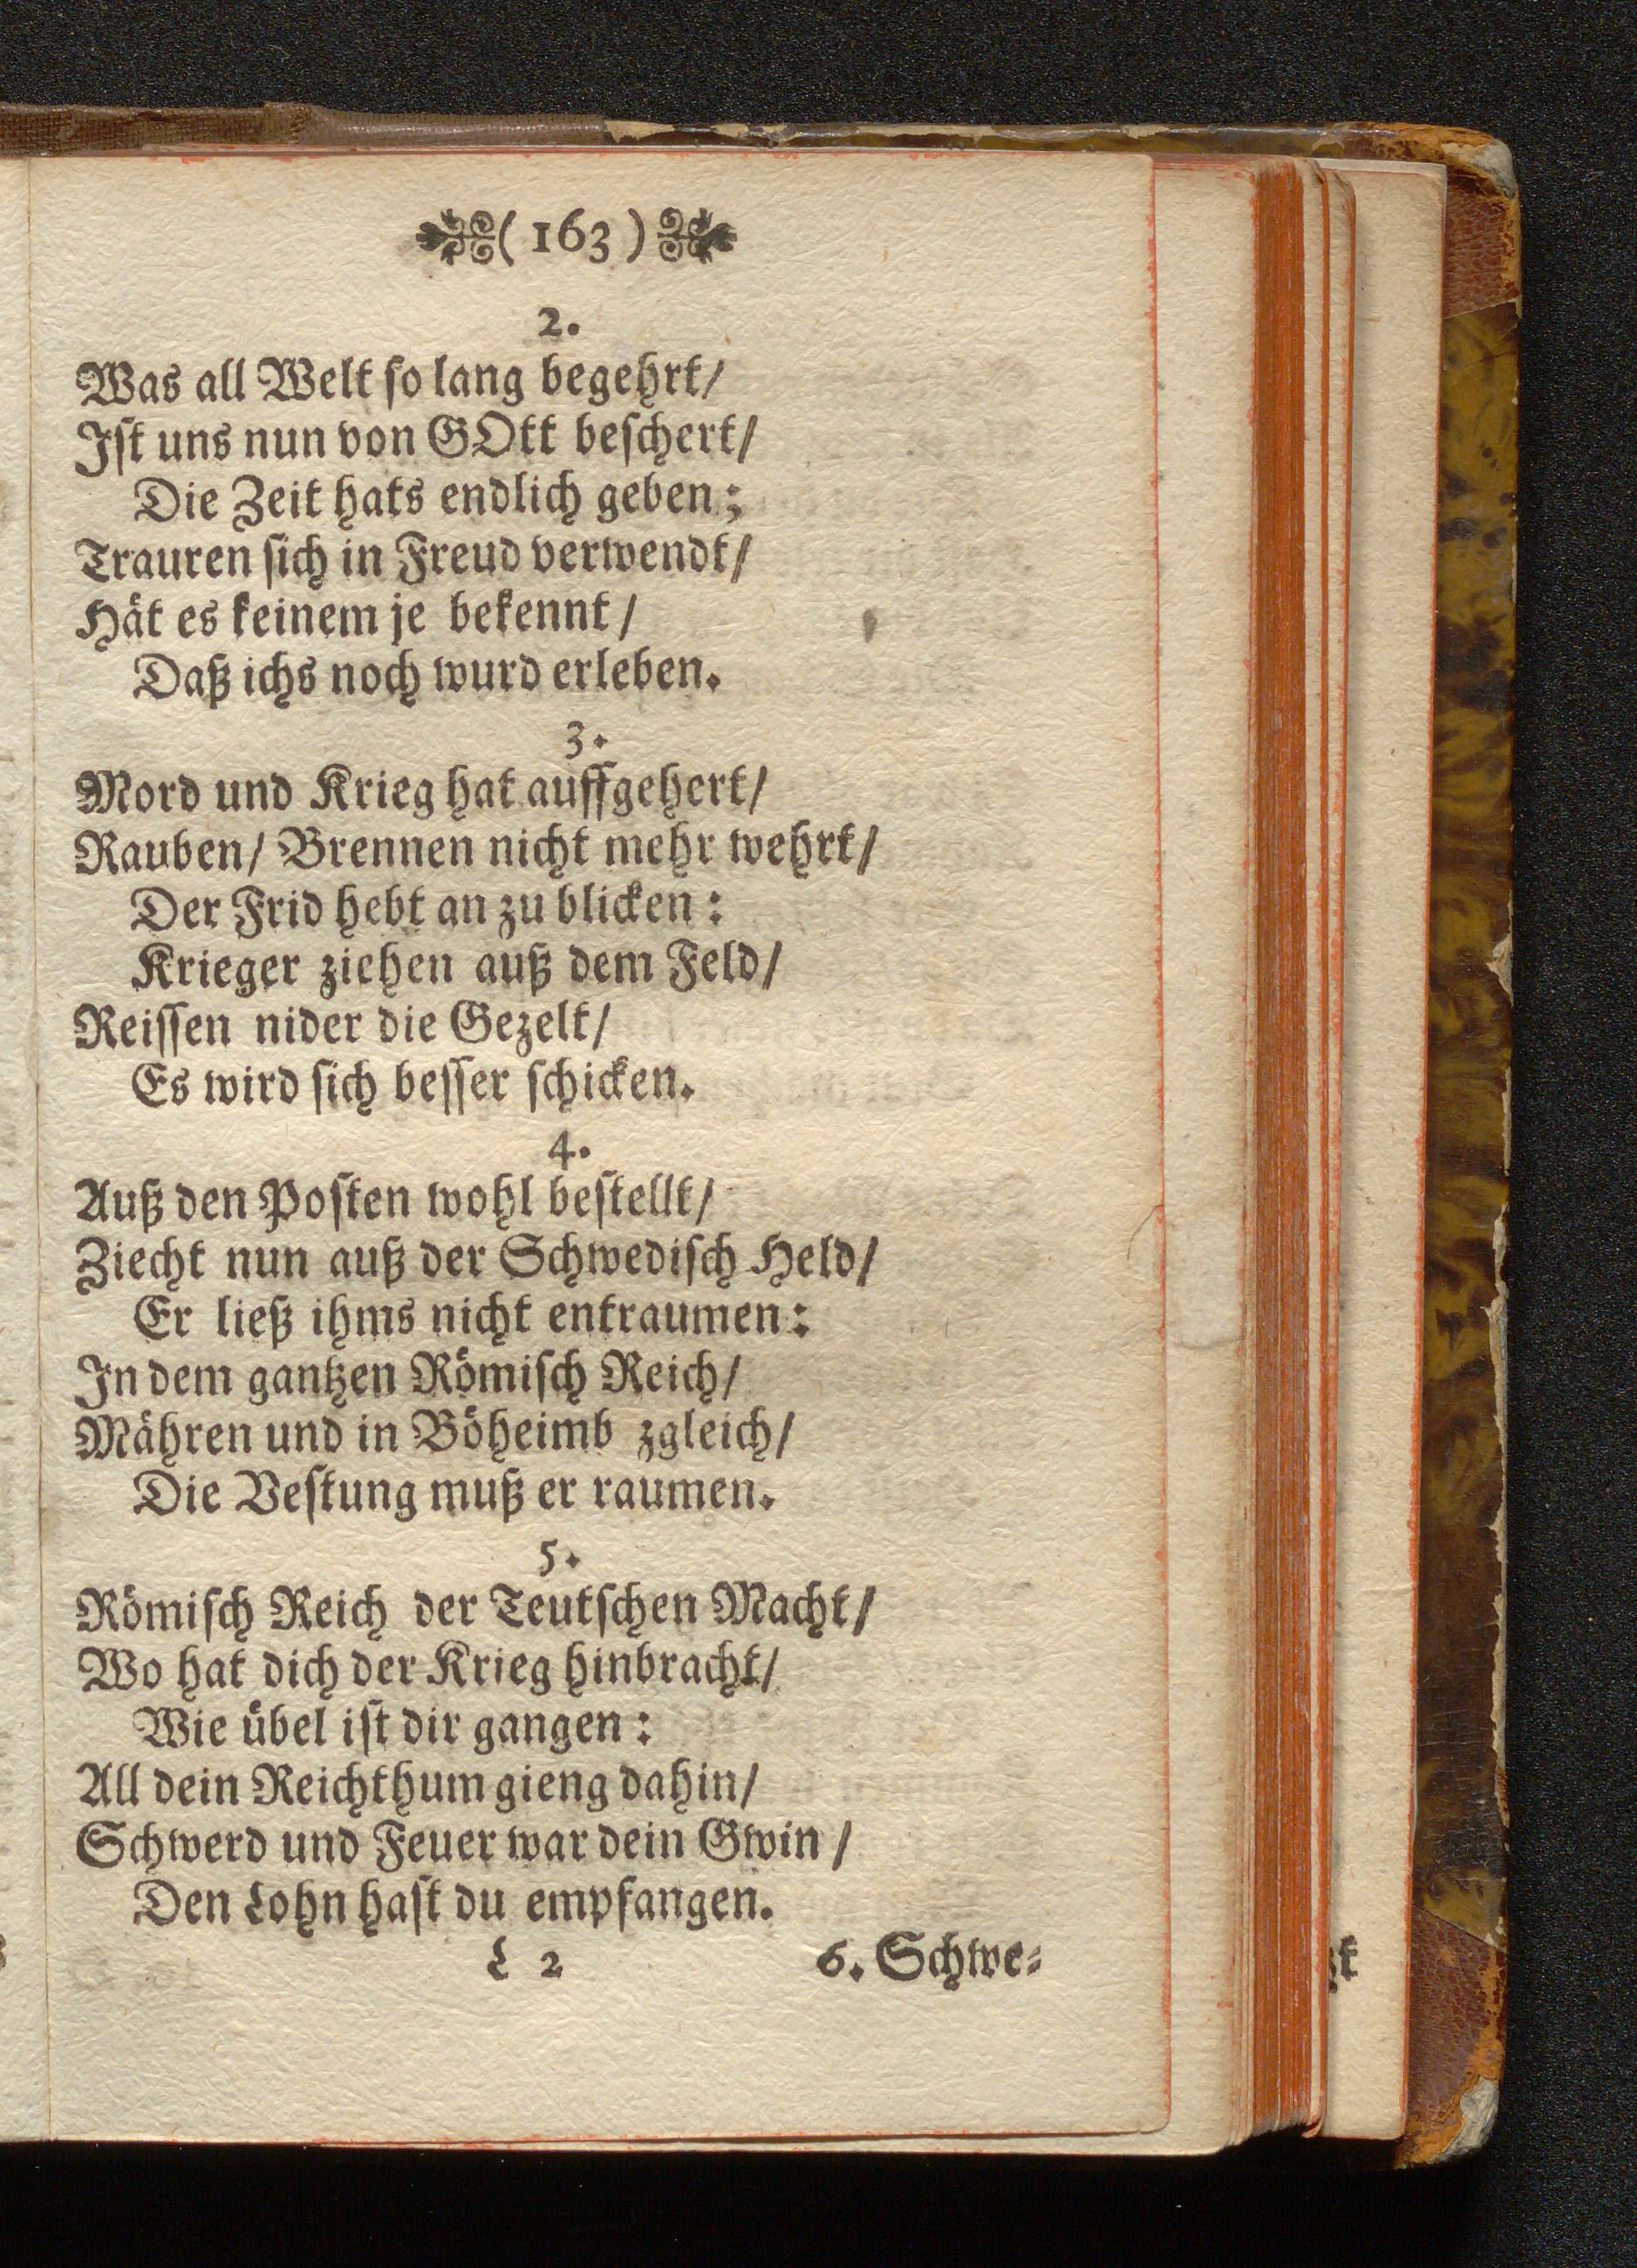 ( 163 )
2.
Was all Welt ſo lang begehrt/
Iſt uns nun von GOtt beſchert/
Die Zeit hats endlich geben;
Trauren ſich in Freud verwendt/
Hät es keinem je bekennt/
Daß ichs noch wurd erleben.
3.
Mord und Krieg hat auffgehert/
Rauben/ Brennen nicht mehr wehrt/
Der Frid hebt an zu blicken:
Krieger ziehen auß dem Feld/
Reiſſen nider die Gezelt/
Es wird ſich beſſer ſchicken.
4.
Auß den Poſten wohl beſtellt/
Ziecht nun auß der Schwediſch Held/
Er ließ ihms nicht entraumen:
In dem gantzen Römiſch Reich/
Mähren und in Böheimb zgleich/
Die Veſtung muß er raumen.
5.
Römiſch Reich der Teutſchen Macht/
Wo hat dich der Krieg hinbracht/
Wie übel iſt dir gangen:
All dein Reichthum gieng dahin/
Schwerd und Feuer war dein Gwin/
Den Lohn haſt du empfangen.
L 2 6. Schwe⸗